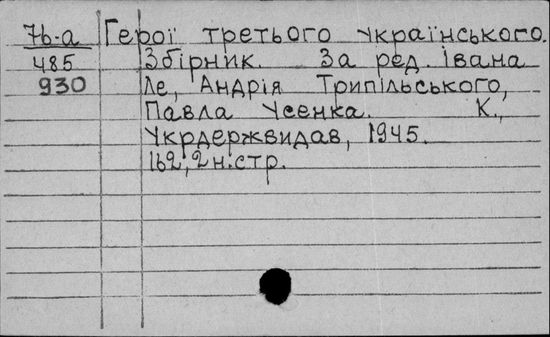 7b-a Герої третього Українського.
485 Збірник. За ред. івана
930 Ле, Андрія Трипільського,
Павла Усенка. К.,
Укрдержвидав, 1945.
162,2н.стр.